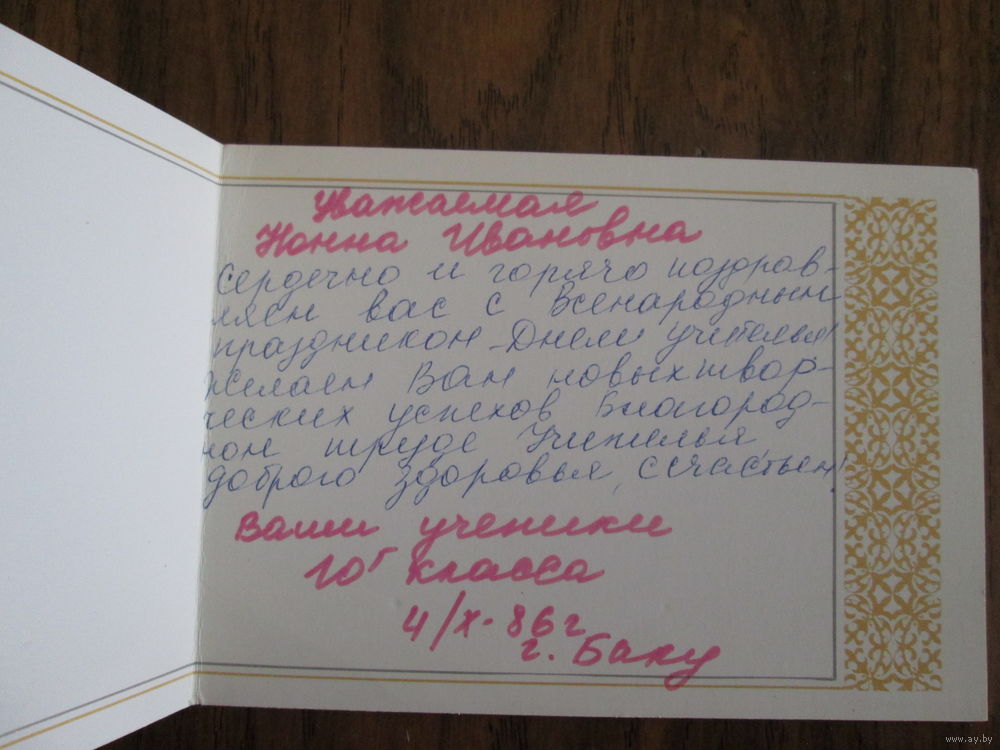 Уважаемая
Нонна Ивановна
Сердечно и горячо поздрав-
ляем вас с Всенародным
праздником Днем учителья!
Желаем Вам новых твор-
ческих успехов Благород-
ном труде Учителья
доброго здоровья, счастьем!
Ваши ученики
10г класса
4/X-86г
г. Баку
www.ay.by